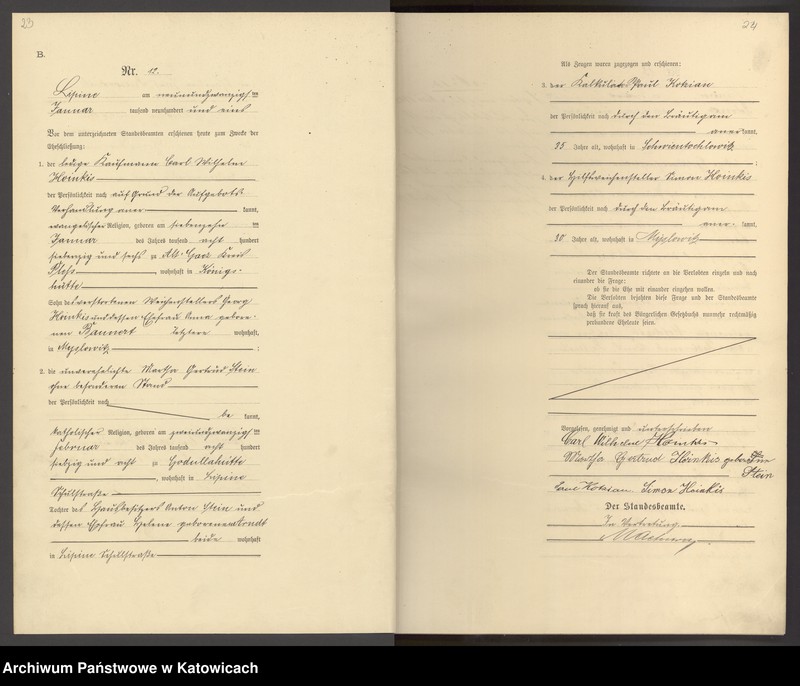 23
B.
Nr. 12.
Lipine am neunundzwanzigsten
Januar tausend neunhundert und eins
Vor dem unterzeichneten Standesbeamten erschienen heute zum Zwecke der
Eheschließung:
1. der ledige Kaufmann Carl Wilhelm
Hoinkis
der Persönlichkeit nach auf Grund der Aufgebots
Verhandlung aner kannt,
evangelischer Religion, geboren am siebenzehnten
Januar des Jahres tausend acht hundert
siebenzig und sechs zu Alt- Kreis
Pless, wohnhaft in Königs-
hütte
Sohn des verstorbenen Weichenstellers Georg
Hoinkis und dessen Ehefrau Anna gebore-
nen Bannert letztere wohnhaft,
in Myslowitz;
2. die unverehelichte Martha Gertrud Stein
ohne besonderen Stand
der Persönlichkeit nach
be kannt,
katholischer Religion, geboren am zweiundzwanzigsten
Februar des Jahres tausend acht hundert
siebzig und acht zu Godullahütte
, wohnhaft in Lipine
Schulstraße
Tochter des Hausbesitzers Anton Stein und
dessen Ehefrau Helene geborenen
beide wohnhaft
in Lipine Schulstraße
24
Als Zeugen waren zugezogen und erschienen:
3. der Kalkulator Paul Kozian
der Persönlichkeit nach durch den Bräutigam
aner kannt,
35 Jahre alt, wohnhaft in Schwientochlowitz
;
4. der Hilfsweichensteller Simon Hoinkis
der Persönlichkeit nach durch den Bräutigam
aner kannt,
30 Jahre alt, wohnhaft in Myslowitz
Der Standesbeamte richtete an die Verlobten einzeln und nach
einander die Frage:
ob sie die Ehe mit einander eingehen wollen.
Die Verlobten bejahten diese Frage und der Standesbeamte
sprach hierauf aus,
daß sie kraft des Bürgerlichen Gesetzbuchs nunmehr rechtmäßig
verbundene Eheleute seien.
Vorgelesen, genehmigt und unterschrieben
Carl Wilhelm Hoinkis
Martha Gertrud Hoinkis geborene
Stein
Paul Kozian. Simon Hoinkis
Der Standesbeamte.
In Vertretung
Archiwum Państwowe w Katowicach